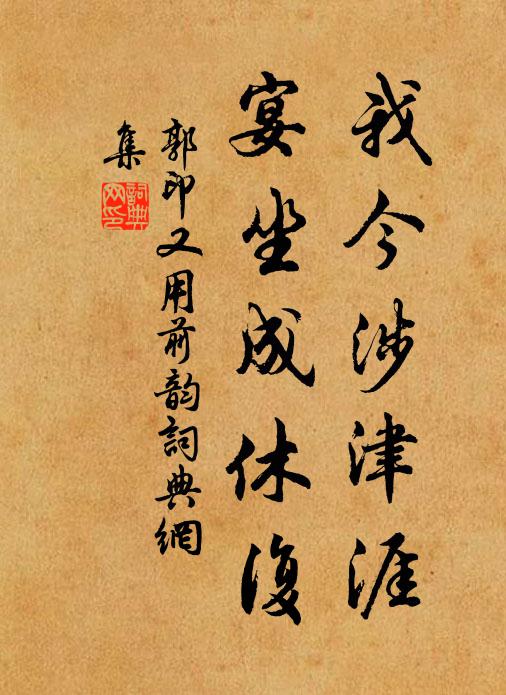 我今涉津涯
宴坐成休復
郭印又用前韵詞典網
集
詞典網印